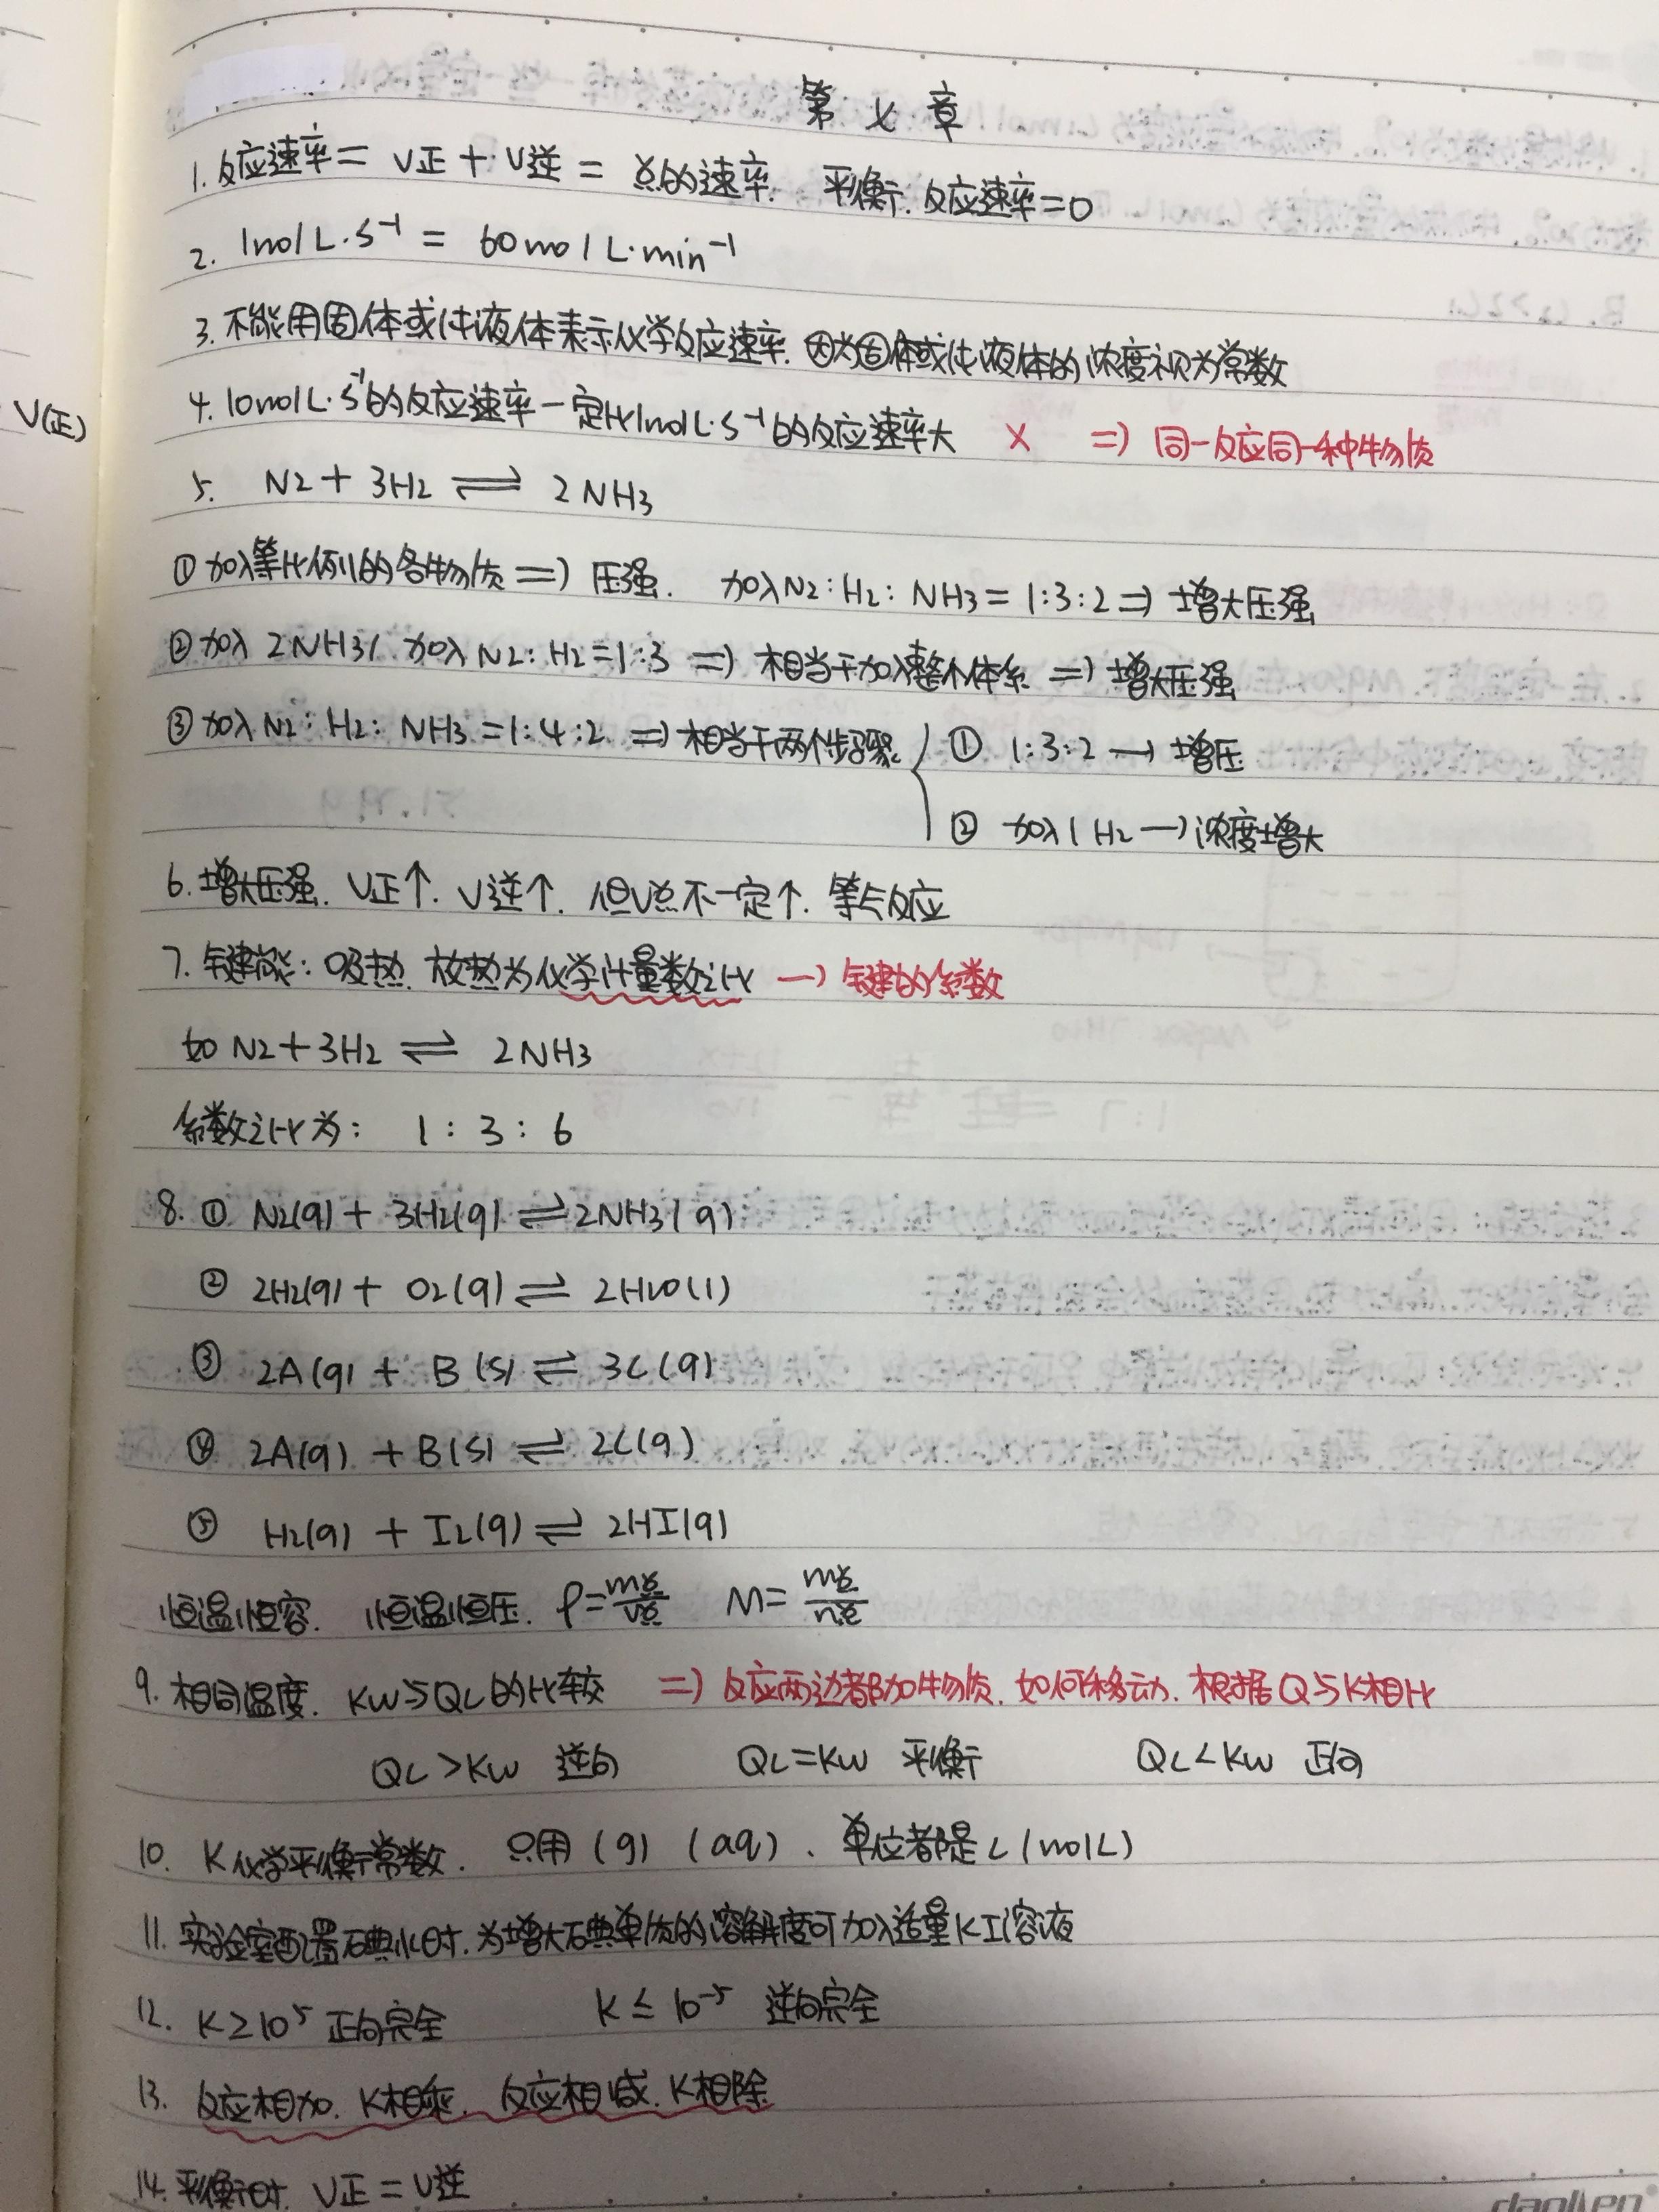 第七章
1. 反应速率 = V正 + V逆 = 总的速率. 平衡. 反应速率=0
2. 1mol L·s⁻¹ = 60mol L·min⁻¹
3. 不能用固体或纯液体表示化学反应速率. 因为固体或纯液体的浓度视为常数
V(正)
4. 10mol L·s⁻¹的反应速率一定比1mol L·s⁻¹的反应速率大 × => 同一反应同一种物质
5. N2 + 3H2 ⇌ 2NH3
① 加入等比例的各物质 => 压强. 加入N2:H2:NH3=1:3:2 => 增大压强
② 加入 2NH3/ 加入N2:H2=1:3 => 相当于加入整个体系 => 增大压强
③ 加入N2:H2:NH3=1:4:2 => 相当于两个步骤 { ① 1:3:2 → 增压
② 加入1H2 → 浓度增大
6. 增大压强. V正↑. V逆↑. 但V总不一定↑. 等与反应
7. 键能: 吸热. 放热为化学计量数之比 → 键的系数
如 N2 + 3H2 ⇌ 2NH3
系数之比为: 1 : 3 : 6
8. ① N2(g) + 3H2(g) ⇌ 2NH3(g)
② 2H2(g) + O2(g) ⇌ 2H2O(l)
③ 2A(g) + B(s) ⇌ 3C(g)
④ 2A(g) + B(s) ⇌ 2C(g)
⑤ H2(g) + I2(g) ⇌ 2HI(g)
恒温恒容. 恒温恒压. ρ=m总/V总 M=m总/n总
9. 相同温度. Kw与Qc的比较 => 反应两边都加物质. 如何移动. 根据Q与K相比
Qc>Kw 逆向 Qc=Kw 平衡 Qc<Kw 正向
10. K化学平衡常数. 只用(g) (aq). 单位都是c(mol L)
11. 实验室配置碘水时. 为增大碘单质的溶解度可加入适量KI溶液
12. K≥10⁵ 正向完全 K≤10⁻⁵ 逆向完全
13. 反应相加. K相乘. 反应相减. K相除
14. 平衡时. V正 = V逆